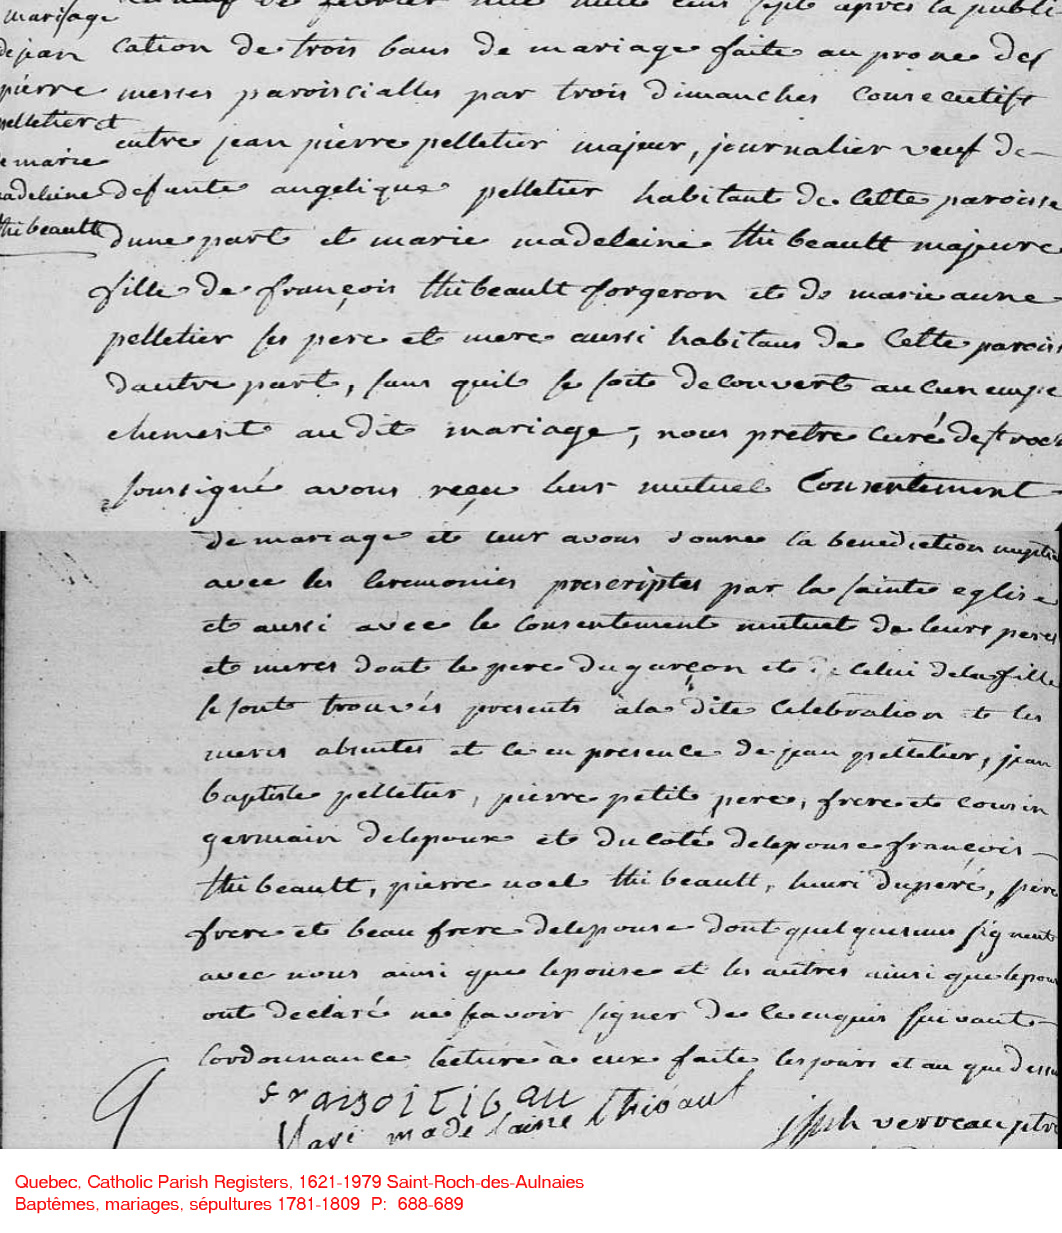 mariage
de jean
pierre
pelletier et
de marie
madeleine
thibeault
neuf de fevrier mil huit cent sept après la publi-
cation de trois bans de mariage faite au prone des
messes paroiscialles par trois dimanches consecutifs
entre jean pierre pelletier majeur, journalier veuf de
defunte angelique pelletier habitant de cette paroisse
dune part et marie madeleine thibeault majeure
fille de françois thibeault forgeron et de marie anne
pelletier ses pere et mere aussi habitans de cette paroiss
dautre part, sans quil se soit decouvert aucun empe
chement au dit mariage; nous pretre curé de st roch
soussigné avons reçu leur mutuel consentement
de mariage et leur avons donné la benediction nuptia
avec les ceremonies prescriptes par la sainte eglise
et aussi avec le consentement mutuel de leurs peres
et meres dont le pere du garçon et de celui de la fille
se sont trouvés presents à la dite celebration et les
meres absentes et ce en presence de jean pelletier, jean
baptiste pelletier, pierre petit pere, frere et cousin
germain delepoux et du coté delepouse françois
thibeault, pierre noel thibeault, henri duperé, pere
frere et beau frere delepouse dont quelques uns signent
avec nous ainsi que lepouse et les autres ainsi que lepoux
ont declaré ne sçavoir signer de ce enquis suivant
lordonnance lecture à eux faite les jours et an que dessus
fraisoi tibau
Mari madelaine Thibaut
jsph verreau ptre
Quebec, Catholic Parish Registers, 1621-1979 Saint-Roch-des-Aulnaies
Baptêmes, mariages, sépultures 1781-1809 P: 688-689